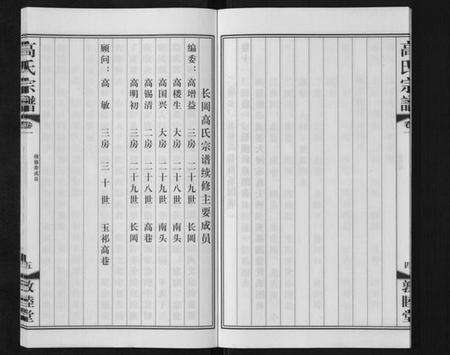 高氏宗譜
卷一
四
敦睦堂
长岡高氏宗谱续修主要成员
编委：高增益 三房 二十九世 长岡
高楼生 大房 二十八世 南头
高国兴 大房 二十九世 南头
高锡清 二房 二十八世 高巷
高明初 三房 二十九世 长岡
顾问：高敏 三房 三十世 玉祁高巷
高氏宗譜
五
敦睦堂